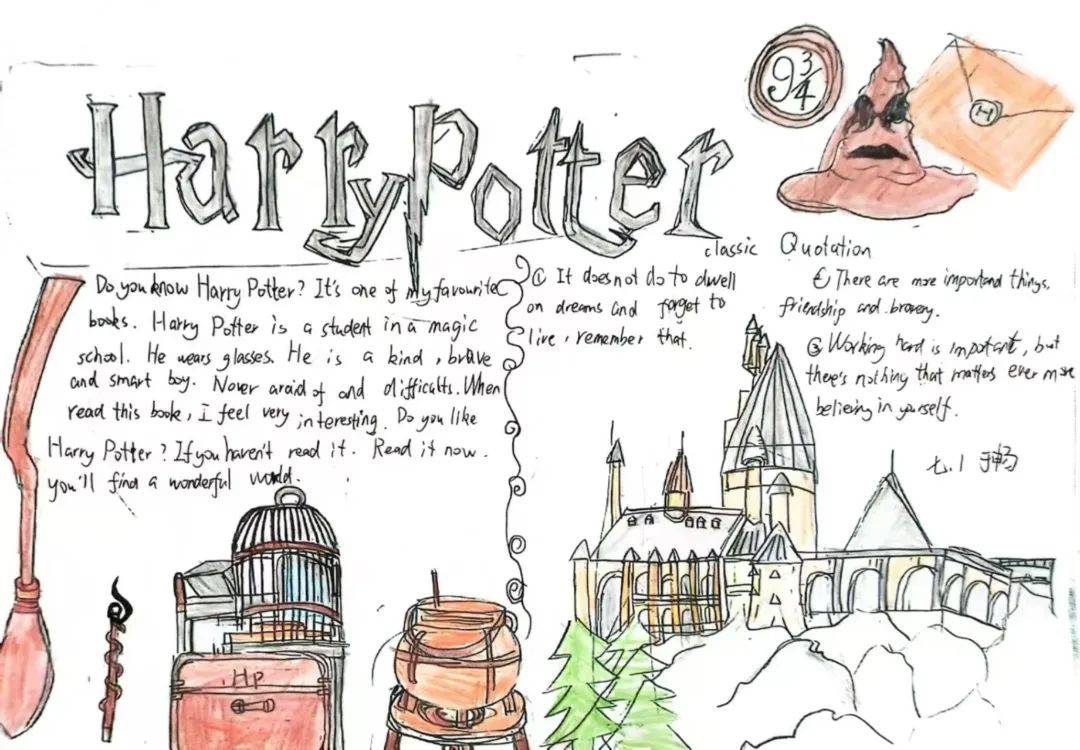 Harry Potter
9 3/4
H
classic Quotation
Do you know Harry Potter? It's one of my favourite
books. Harry Potter is a student in a magic
school. He wears glasses. He is a kind, brave
and smart boy. Never araid of and difficults. When
read this book, I feel very interesting. Do you like
Harry Potter? If you haven't read it. Read it now.
you'll find a wonderful world.
① It does not do to dwell
on dreams and forget to
live, remember that.
There are more important things,
friendship and bravery.
Working hard is important, but
there's nothing that matters ever more
believing in yourself.
七.1
HP